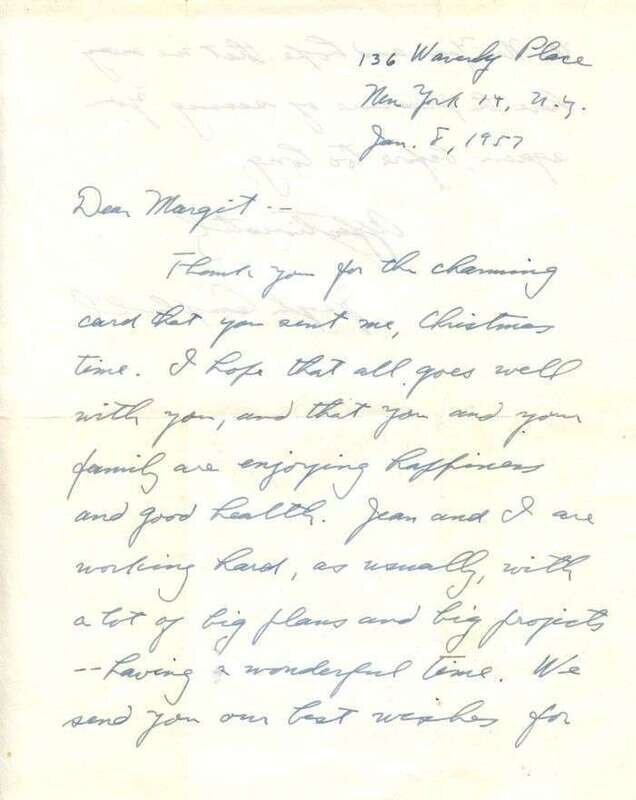 136 Waverly Place
New York 14, N.Y.
Jan. 8, 1957
Dear Margit --
Thank you for the charming
card that you sent me, Christmas
time. I hope that all goes well
with you, and that you and your
family are enjoying happiness
and good health. Jean and I are
working hard, as usually, with
a lot of big plans and big projects
-- having a wonderful time. We
send you our best wishes for